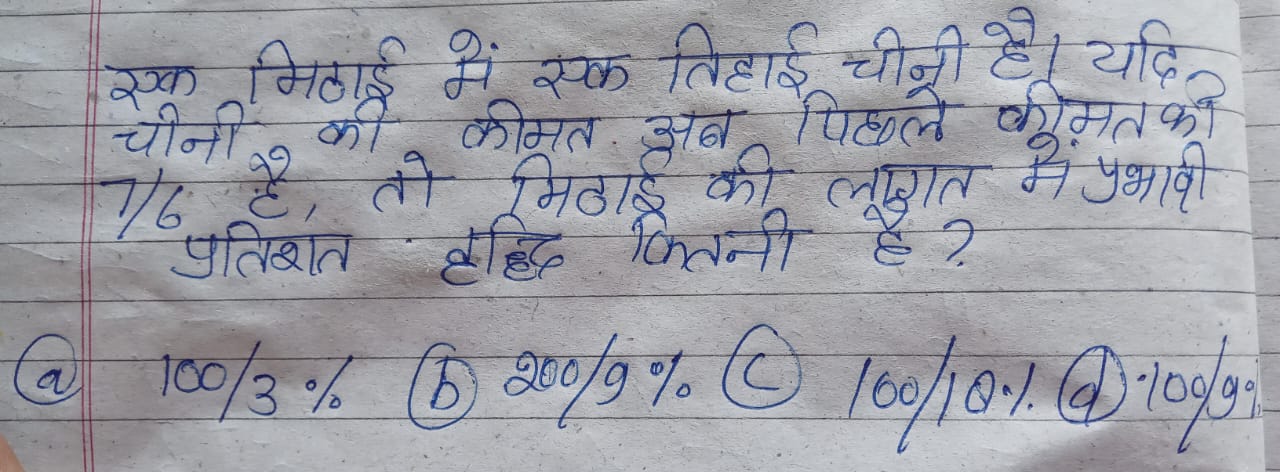 एक मिठाई में एक तिहाई चीनी है। यदि
चीनी की कीमत अब पिछले कीमत की
7/6 है, तो मिठाई की लागत में प्रभावी
प्रतिशत वृद्धि कितनी है ?
(a) 100/3 % (b) 200/9 % (c) 100/18 % (d) 100/9 %